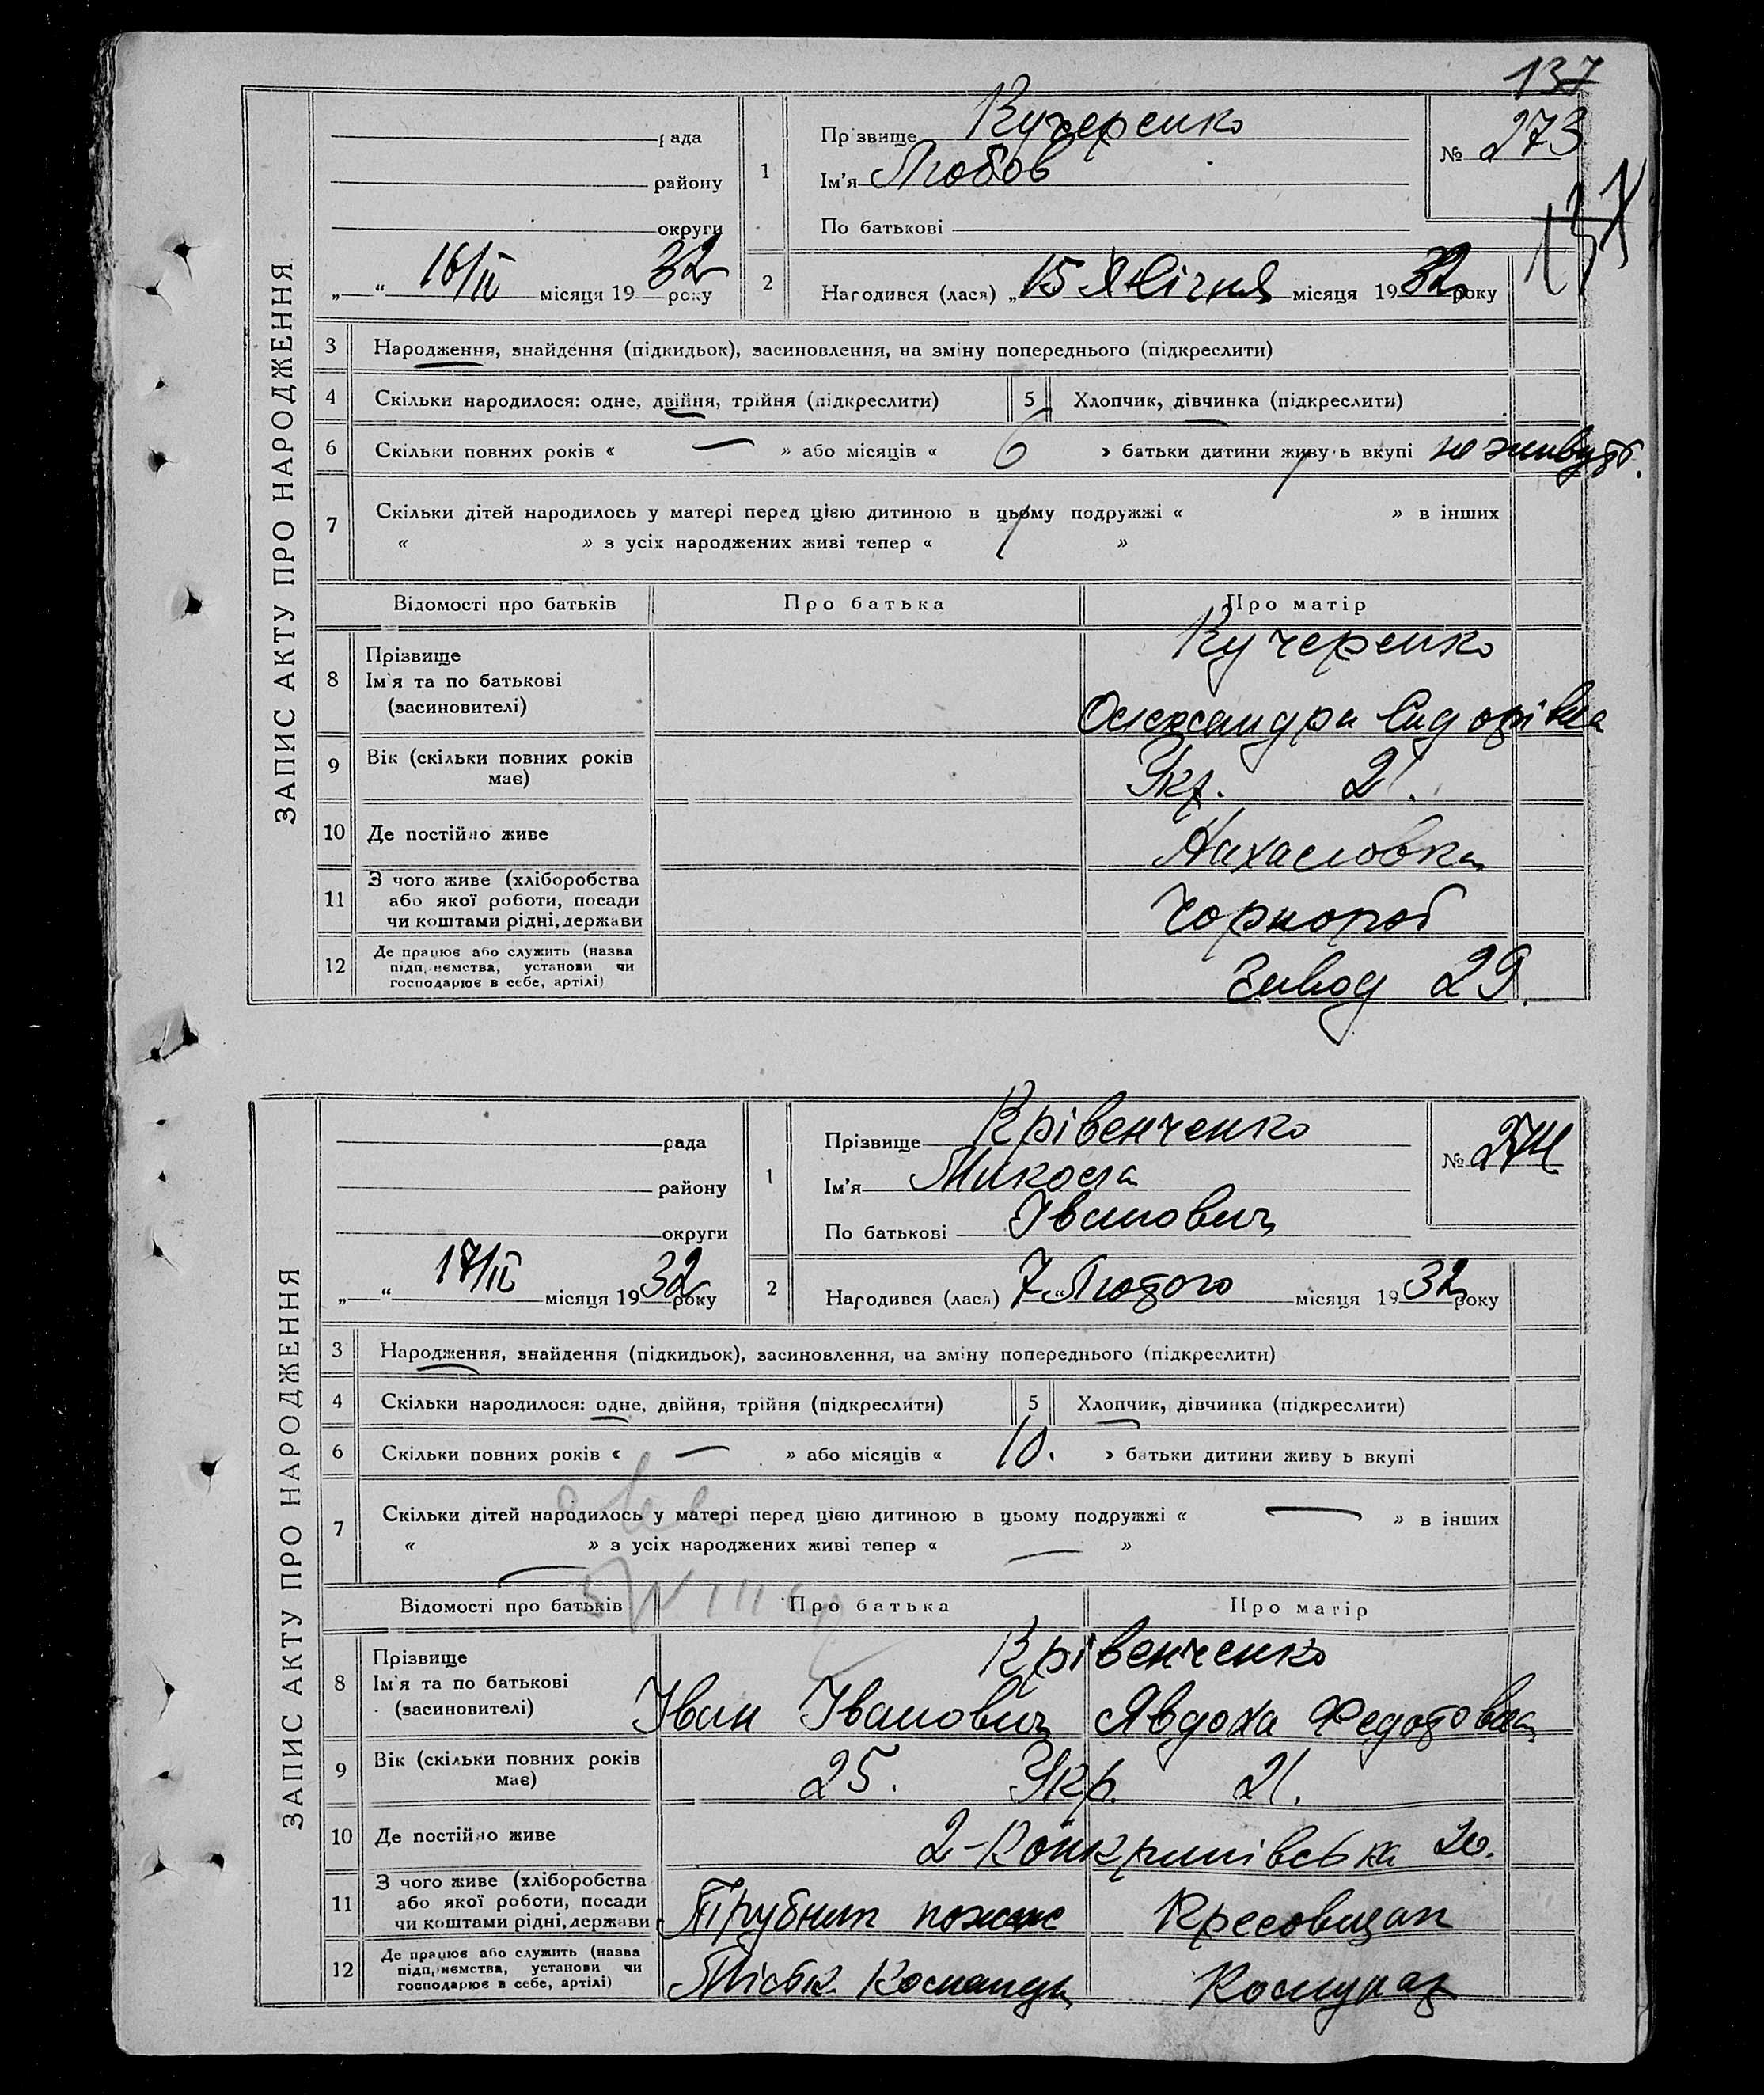 137
ЗАПИС АКТУ ПРО НАРОДЖЕННЯ
рада
району
округи
„ “ 16/II місяця 19 32 року
1 Прізвище Кучеренко
Ім'я Любов
По батькові
№ 273
137
2 Народився (лася) „ 15 Січня місяця 19 32 року
3 Народження, знайдення (підкидьок), засиновлення, на зміну попереднього (підкреслити)
4 Скільки народилося: одне, двійня, трійня (підкреслити) 5 Хлопчик, дівчинка (підкреслити)
6 Скільки повних років « — » або місяців « 6 » батьки дитини живуь вкупі не живуть.
7 Скільки дітей народилось у матері перед цією дитиною в цьому подружжі « » в інших
« » з усіх народжених живі тепер « »
Відомості про батьків Про батька Про матір
8 Прізвище
Ім'я та по батькові
(засиновителі)
Кучеренко
Олександра Сидорівна
9 Вік (скільки повних років
має)
Укр. 21.
10 Де постійно живе
11 З чого живе (хліборобства
або якої роботи, посади
чи коштами рідні, держави
Чорнороб
12 Де працює або служить (назва
підприємства, установи чи
господарює в себе, артілі)
Завод 29.
ЗАПИС АКТУ ПРО НАРОДЖЕННЯ
рада
району
округи
„ “ 17/II місяця 19 32 року
1 Прізвище Крівенченко
Ім'я Микола
По батькові Іванович
№ 274
2 Народився (лася) 7 „ Лютого місяця 19 32 року
3 Народження, знайдення (підкидьок), засиновлення, на зміну попереднього (підкреслити)
4 Скільки народилося: одне, двійня, трійня (підкреслити) 5 Хлопчик, дівчинка (підкреслити)
6 Скільки повних років « — » або місяців « 10. » батьки дитини живу ь вкупі
7 Скільки дітей народилось у матері перед цією дитиною в цьому подружжі « — » в інших
« — » з усіх народжених живі тепер « — »
Відомості про батьків Про батька Про матір
8 Прізвище
Ім'я та по батькові
(засиновителі)
Крівенченко
Іван Іванович Явдоха Федотовна
9 Вік (скільки повних років
має)
25. Укр. 21.
10 Де постійно живе
20.
11 З чого живе (хліборобства
або якої роботи, посади
чи коштами рідні, держави
Трубник
12 Де працює або служить (назва
підприємства, установи чи
господарює в себе, артілі)
Міськ. Команда